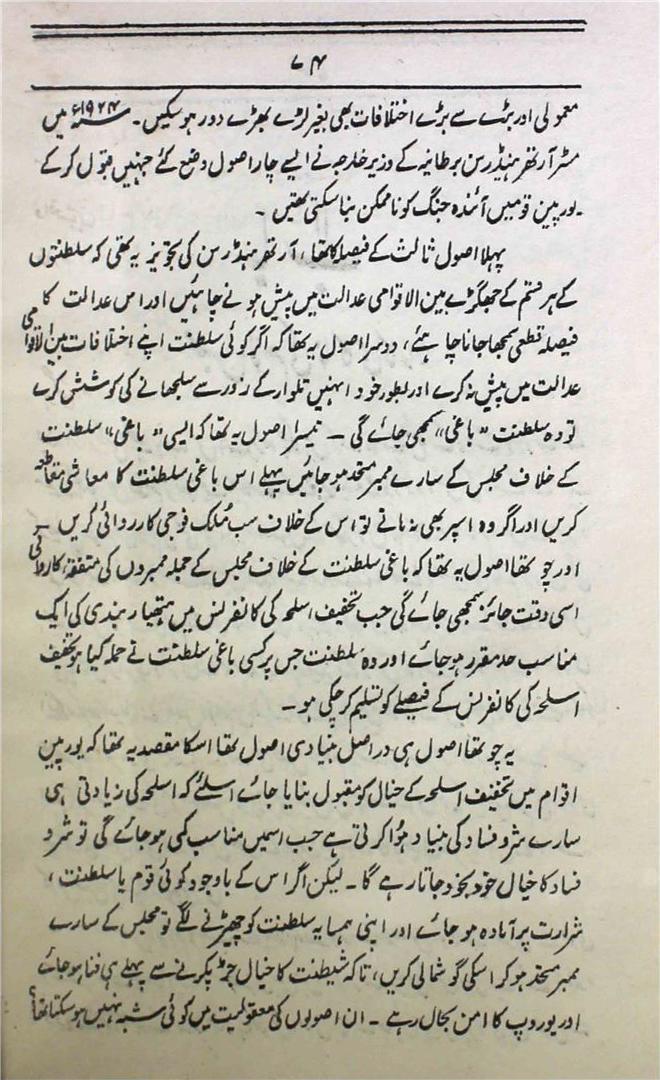 ۷۴
معمولی اور بڑے سے بڑے اختلافات بھی بغیر لڑے بھڑے دور ہوسکیں۔ ۱۹۲۴ء میں
مسٹر آرتھر ہنڈرسن برطانیہ کے وزیر خارجہ نے ایسے چار اصول وضع کئے جنہیں قبول کر کے
یورپین قومیں آئندہ جنگ کو ناممکن بنا سکتی تھیں۔
پہلا اصول ثالث کے فیصلہ کا تھا، آرتھر ہنڈرسن کی تجویز یہ تھی کہ سلطنتوں
کے ہر قسم کے جھگڑے بین الاقوامی عدالت میں پیش ہونے چاہئیں اور اس عدالت کا
فیصلہ قطعی سمجھا جانا چاہئے، دوسرا اصول یہ تھا کہ اگر کوئی سلطنت اپنے اختلافات بین الاقوامی
عدالت میں پیش نہ کرے اور بطور خود انہیں تلوار کے زور سے سلجھانے کی کوشش کرے
تو وہ سلطنت "باغی" سمجھی جائے گی۔ تیسرا اصول یہ تھا کہ ایسی "باغی" سلطنت
کے خلاف مجلس کے سارے ممبر متحد ہو جائیں پہلے اس باغی سلطنت کا معاشی مقاطعہ
کریں اور اگر وہ اسپر بھی نہ مانے تو اس کے خلاف سب مُلک فوجی کارروائی کریں۔
اور چوتھا اصول یہ تھا کہ باغی سلطنت کے خلاف مجلس کے جملہ ممبروں کی متفقہ کاروائی
اسی وقت جائز سمجھی جائے گی جب تخفیف اسلحہ کی کانفرنس میں ہتھیار بندی کی ایک
مناسب حد مقرر ہو جائے اور وہ سلطنت جس پر کسی باغی سلطنت نے حملہ کیا ہو تخفیف
اسلحہ کی کانفرنس کے فیصلے کو تسلیم کر چکی ہو۔
یہ چوتھا اصول ہی دراصل بنیادی اصول تھا اسکا مقصد یہ تھا کہ یورپین
اقوام میں تخفیف اسلحہ کے خیال کو مقبول بنایا جائے اسلئے کہ اسلحہ کی زیادتی ہی
سارے شر و فساد کی بنیاد ہؤا کرتی ہے جب اسمیں مناسب کمی ہو جائے گی تو شر و
فساد کا خیال خود بخود جاتا رہے گا۔ لیکن اگر اس کے باوجود کوئی قوم یا سلطنت،
شرارت پر آمادہ ہو جائے اور اپنی ہمسایہ سلطنت کو چھیڑنے لگے تو مجلس کے سارے
ممبر متحد ہو کر اسکی گوشمالی کریں، تاکہ شیطنت کا خیال جڑ پکڑنے سے پہلے ہی فنا ہو جائے
اور یوروپ کا امن بحال رہے۔ ان اصولوں کی معقولیت میں کوئی شبہ نہیں ہو سکتا تھا؟